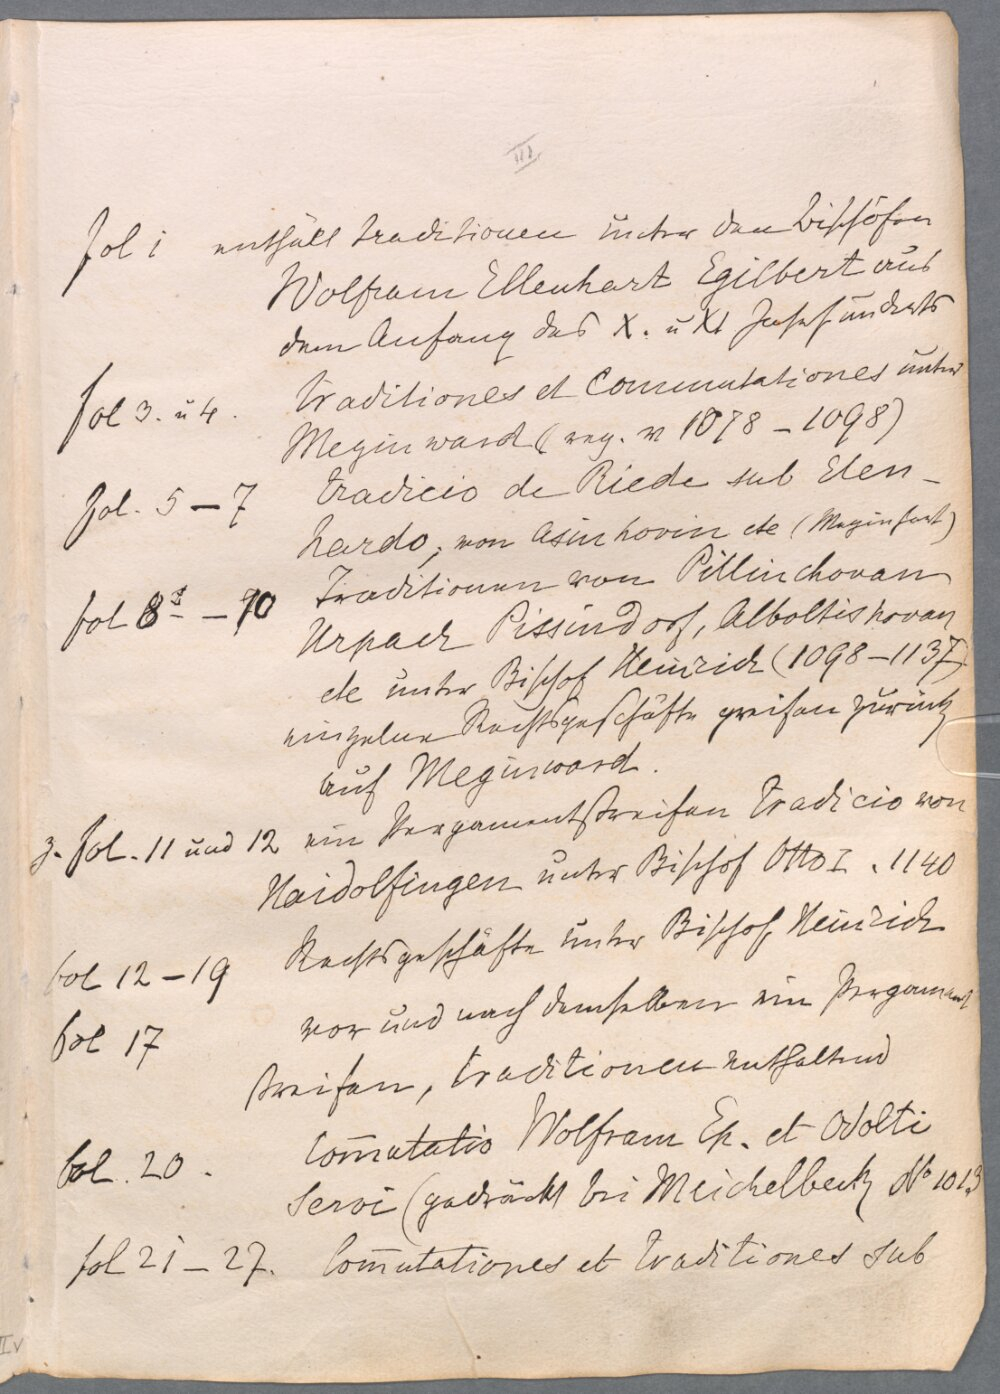 III
fol 1 enthält Traditionen unter den Bischöfen
Wolfram Ellenhart Egilbert aus
dem Anfang des X. u XI Jahrhunderts
fol 3. u 4. Traditiones et Commutationes unter
Meginward (reg. v 1078 – 1098)
fol. 5 – 7 Tradicio de Riede sub Elen-
hardo, von Asinhovin etc (Meginhart)
fol 8 – 10 Traditionen von Pillinchovan
Urpach Pissindorf, Alboltishovan
etc unter Bischof Heinrich (1098 – 1137)
einzelne Rechtsgeschäfte greifen zurück
auf Meginward.
z. fol. 11 und 12 ein Pergamentstreifen Tradicio von
Haidolfingen unter Bischof Otto I. 1140
fol 12 – 19 Rechtsgeschäfte unter Bischof Heinrich
fol 17 vor und nach demselben ein Pergament
streifen, Traditionen enthaltend
fol. 20. Com̅utatio Wolfram Ep. et Odolti
Servi (gedruckt bei Meichelbeck No 1013
fol 21 – 27. Com̅utationes et Traditiones sub
II v